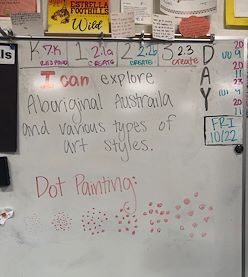 ESTRELLA
FOOTHILLS
Wild
K 7.K 1 2.1a 2 2.2b 3 2.3
CREATE CREATE create
D
A
Y
I can explore
Aboriginal Austraila
and various types of
art styles.
FRI
10/22
Dot Painting: